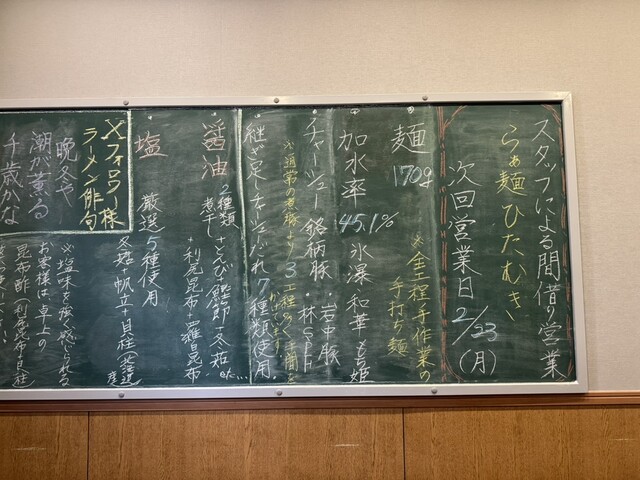 スタッフによる間借り営業
らぁ麺ひたむき
次回営業日 2/23(月)
麺 170g ※全工程手作業の
手打ち麺
加水率 45.1% 氷瀑 和華 もち姫
チャーシュー 銘柄豚 ・岩中豚
・林SPF
※通常の煮豚より3工程の手間を
かけています
継ぎ足しチャーシューだれ 7種類使用
醤油 2種類
煮干し +さんび鰹節+冬菇 etc...
+利尻昆布+羅臼昆布
塩 厳選5種使用
冬菇+帆立+貝柱(北海道
産)
Xフォロワー様
ラーメン俳句
晩冬や
潮が薫る
千歳かな
※塩味を強く感じられる
お客様は卓上の
昆布酢(利尻昆布+貝柱